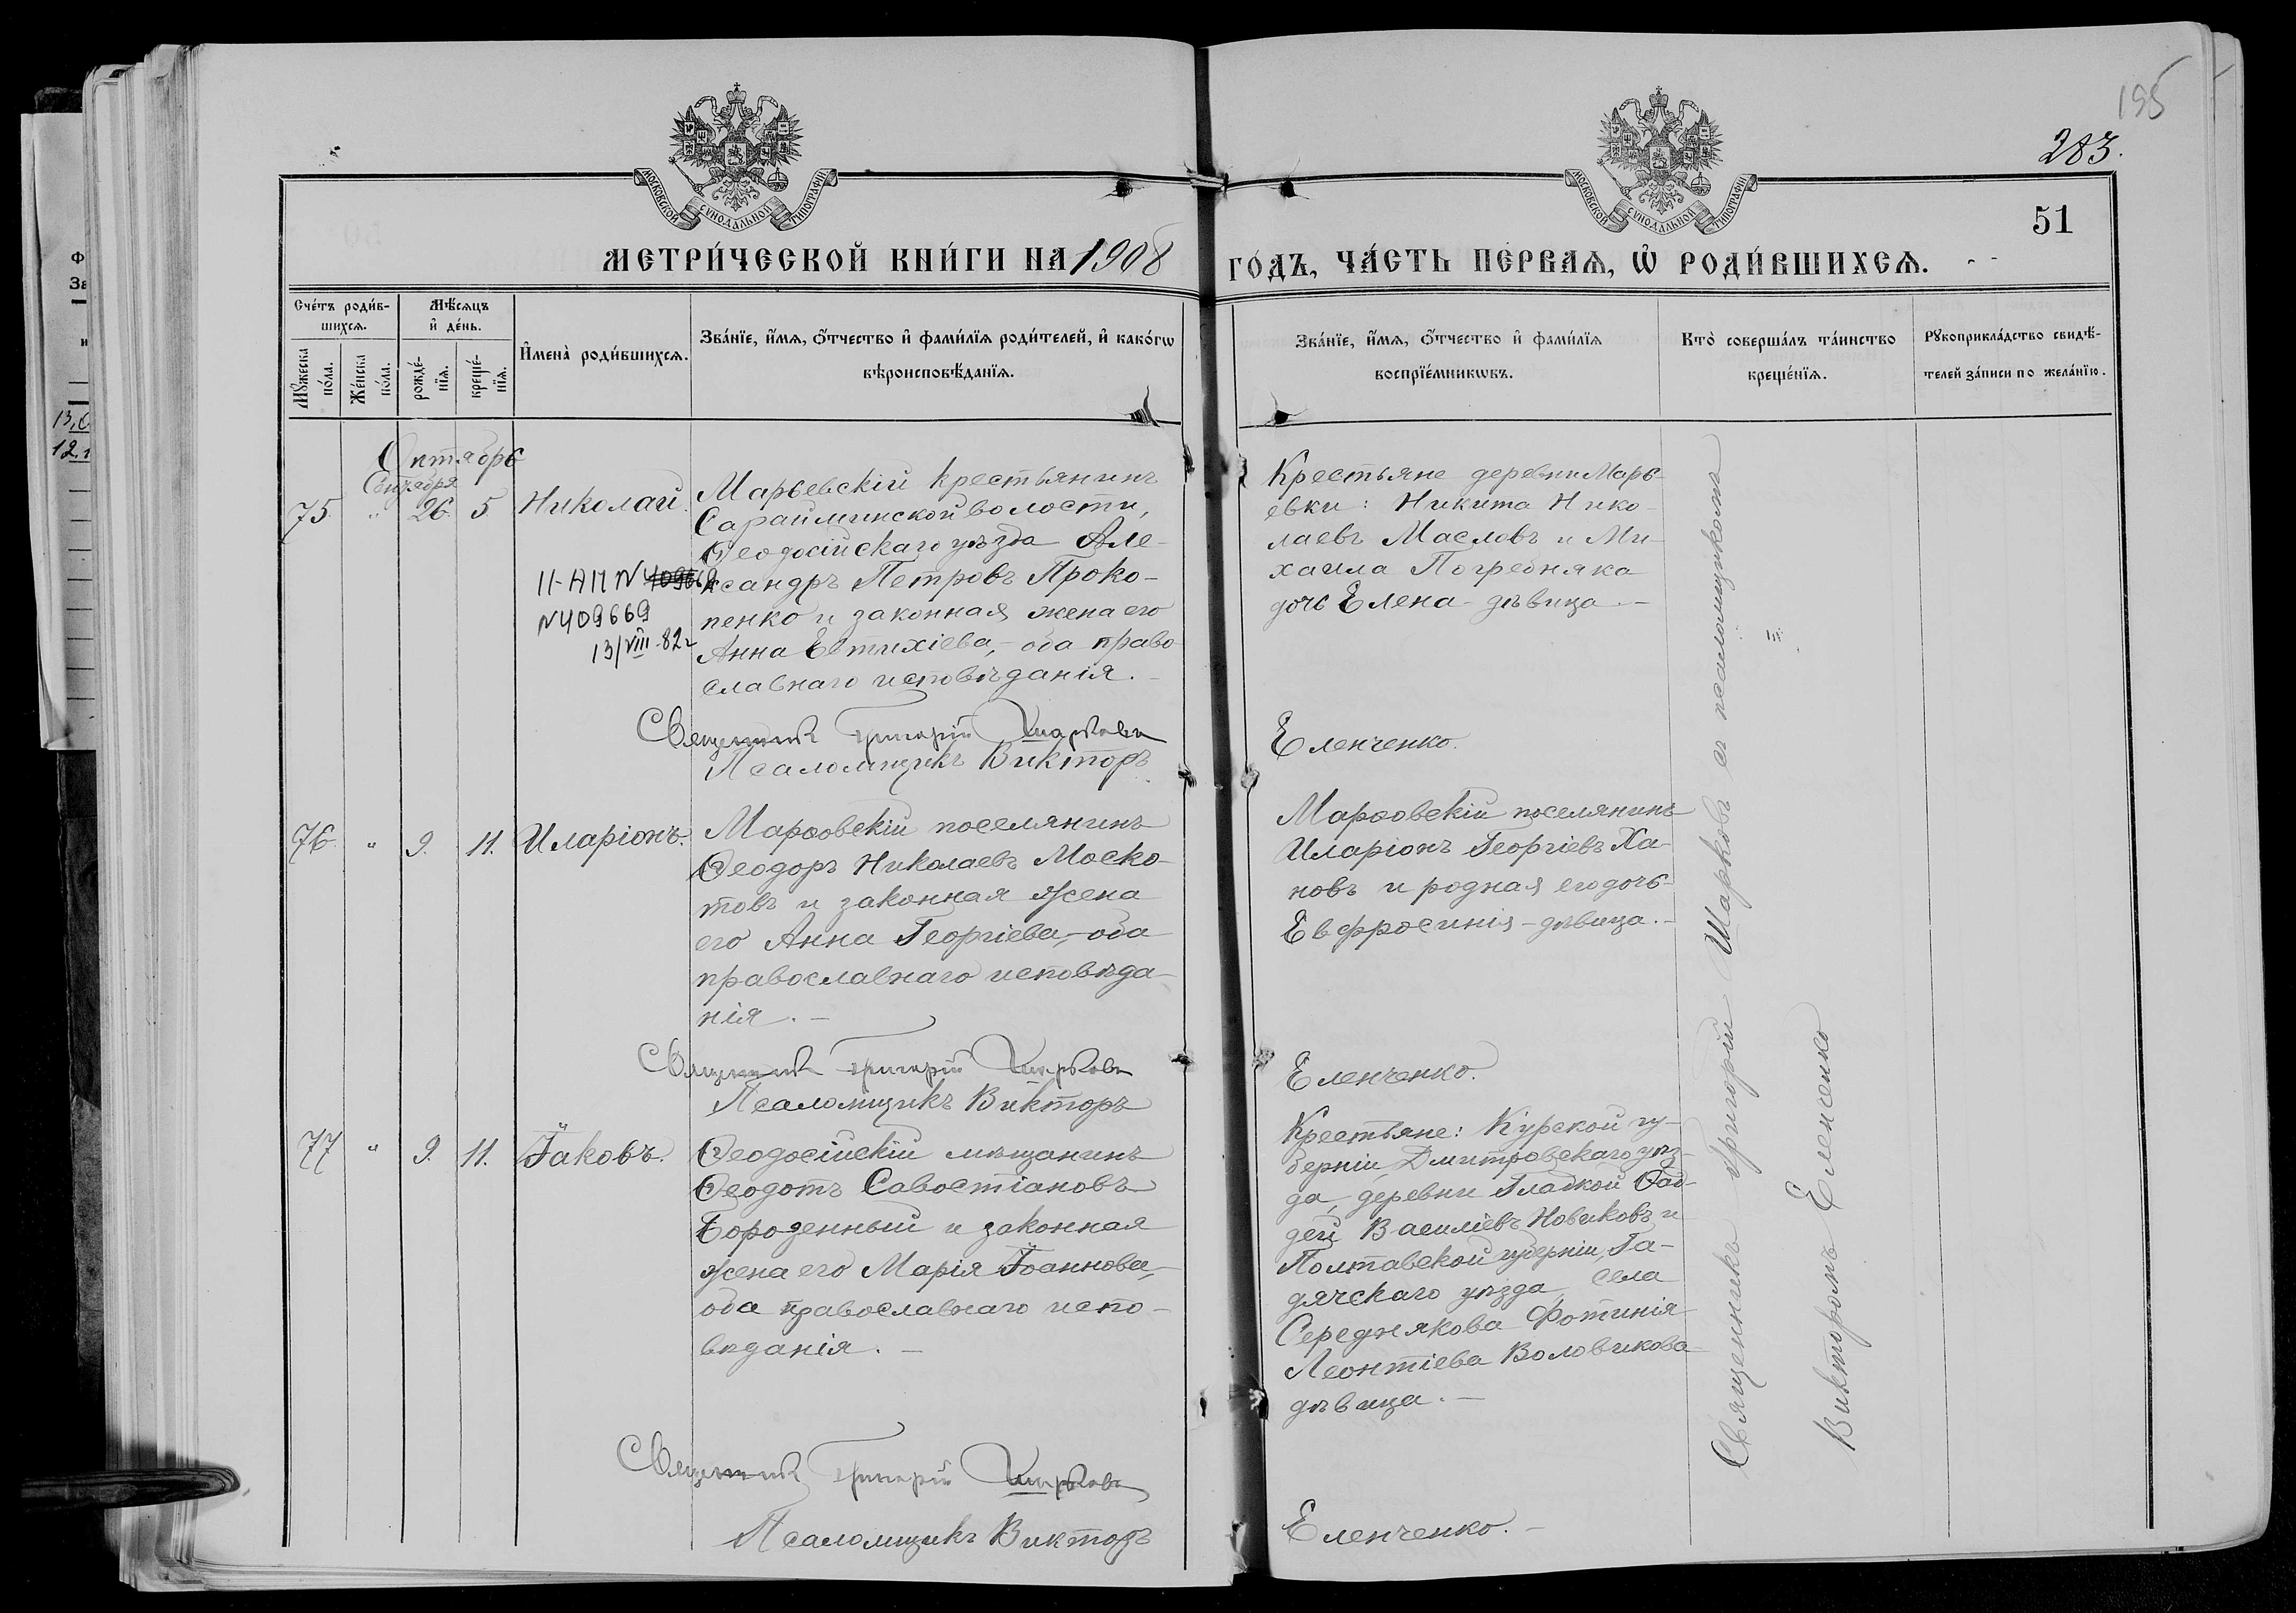 195
283.
51
МОСКОВСКОЙ СѴНОДАЛЬНОЙ ТИПОГРАФІИ
МОСКОВСКОЙ СѴНОДАЛЬНОЙ ТИПОГРАФІИ
МЕТРИ́ЧЕСКОЙ КНИ́ГИ НА 1908 ГО́ДЪ, ЧА́СТЬ ПЕ́РВАѦ, Ѡ҆ РОДИ́ВШИХСѦ.
Сче́тъ роди́в-
шихсѧ.
Мꙋ́жеска
по́ла.
Же́нска
по́ла.
Мѣ́сѧцъ
и҆ де́нь.
рожде́-
нїѧ.
креще́-
нїѧ.
И҆мена̀ роди́вшихсѧ.
Зва́нїе, и҆́мѧ, ѻ҆́тчество и҆ фами́лїѧ роди́телей, и҆ како́гѡ
вѣроисповѣ́данїѧ.
Зва́нїе, и҆́мѧ, ѻ҆́тчество и҆ фами́лїѧ
воспрїе́мникѡвъ.
Кто̀ соверша́лъ та́инство
креще́нїѧ.
Рꙋкоприкла́дство свидѣ́-
телей за́писи по жела́нїю.
Октябрь
Сентября
75 " 26. 5. Николай.
Марьевскій крестьянинъ
Сарайминской волости,
Ѳеодосійскаго уѣзда Але-
ксандръ Петровъ Проко-
пенко и законная жена его
Анна Евтихіева, – оба право-
славнаго исповѣданія. –
II-АП N 409669
N409669
13/VIII-82г
Священникъ Григорій Шарковъ
Псаломщикъ Викторъ
Крестьяне деревни Марь-
евки: Никита Нико-
лаевъ Масловъ и Ми-
хаила Погребняка
дочь Елена – дѣвица. –
Еленченко.
76. " 9. 11. Иларіонъ.
Марѳовскій поселянинъ
Ѳеодоръ Николаевъ Моско-
товъ и законная жена
его Анна Георгіева, – оба
православнаго исповѣда-
нія. –
Священникъ Григорій Шарковъ
Псаломщикъ Викторъ
Марѳовскій поселянинъ
Иларіонъ Георгіевъ Ха-
новъ и родная его дочь –
Евфросинія – дѣвица. –
Еленченко.
77 " 9. 11. Іаковъ.
Ѳеодосійскій мѣщанинъ
Ѳеодотъ Савостіановъ
Бороденный и законная
жена его Марія Іоаннова, –
оба православнаго испо-
вѣданія. –
Священникъ Григорій Шарковъ
Псаломщикъ Викторъ
Крестьяне: Курской гу-
берніи, Дмитровскаго уѣз-
да, деревни Гладкой Ѳад-
дей Василіевъ Новиковъ и
Полтавской губерніи, Га-
дячскаго уѣзда, села
Середнякова Фотинія
Леонтіева Воловикова
дѣвица. –
Еленченко. –
Священникъ Григорій Шарковъ съ псаломщикомъ
Викторомъ Еленченко